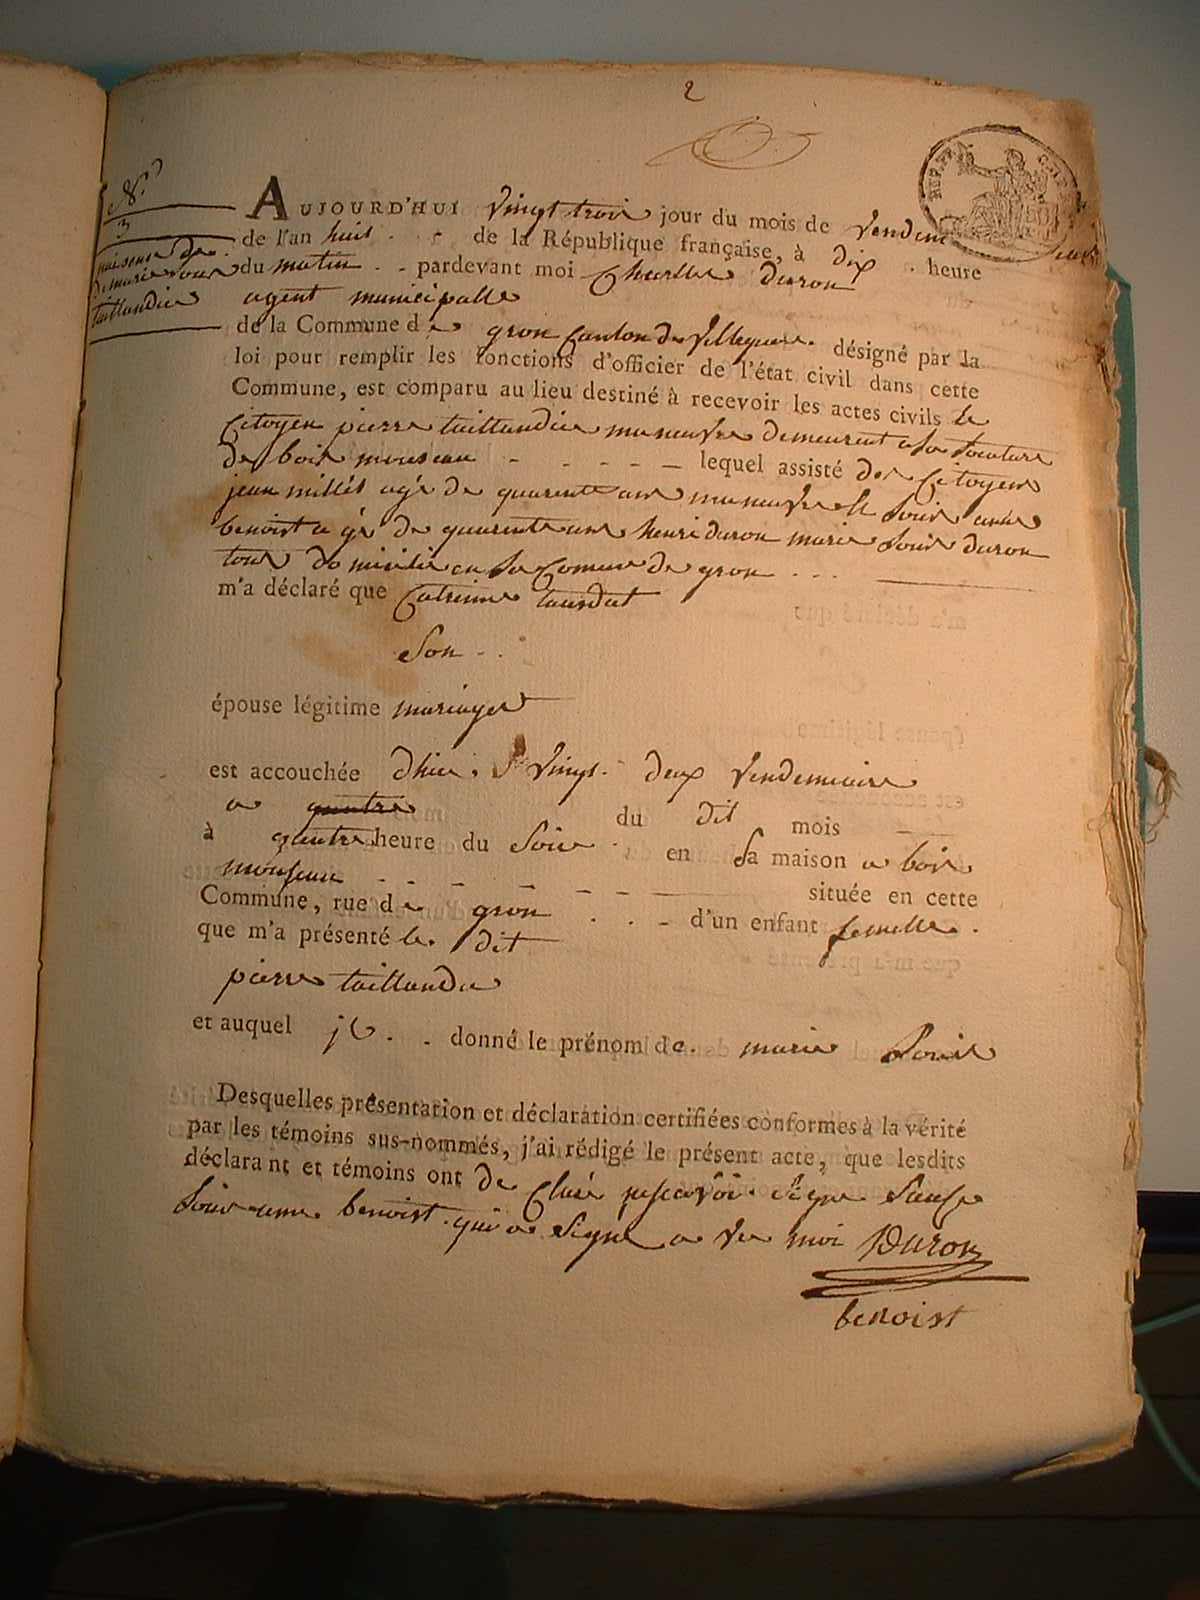 2
N.o
3
naisance de
marie louis
taillandie
AUJOURD'HUI vingt trois jour du mois de vendem
de l'an huit de la République française, à dix heure
du matin pardevant moi Charlle duron
agent municipalle
de la Commune de gron Canton de Villequiere désigné par la
loi pour remplir les fonctions d'officier de l'état civil dans cette
Commune, est comparu au lieu destiné à recevoir les actes civils le
Citoyen pierre taillandie maneuvre demeurent a la
de bois mouseau lequel assisté des Citoyens
jean millét agé de quarente ans maneuvre et louis
benoist agé de quarente ans henri duron marie louis duron
tous domicilie en la Comune de gron
m'a déclaré que Catrinne tourdat
Son
épouse légitime mariages
est accouchée dhier vingt deux vendemiaire
a quatre du dit mois
à quatre heure du soir en sa maison a bois
mouseau située en cette
Commune, rue de gron d'un enfant femelle.
que m'a présenté le dit
pierre taillandie
et auquel donné le prénom de marie louis
Desquelles présentation et déclaration certifiées conformes à la vérité
par les témoins sus-nommés, j'ai rédigé le présent acte, que lesdits
déclarant et témoins ont de Claré signe
benoist qui a signé avec moi Duron
benoist